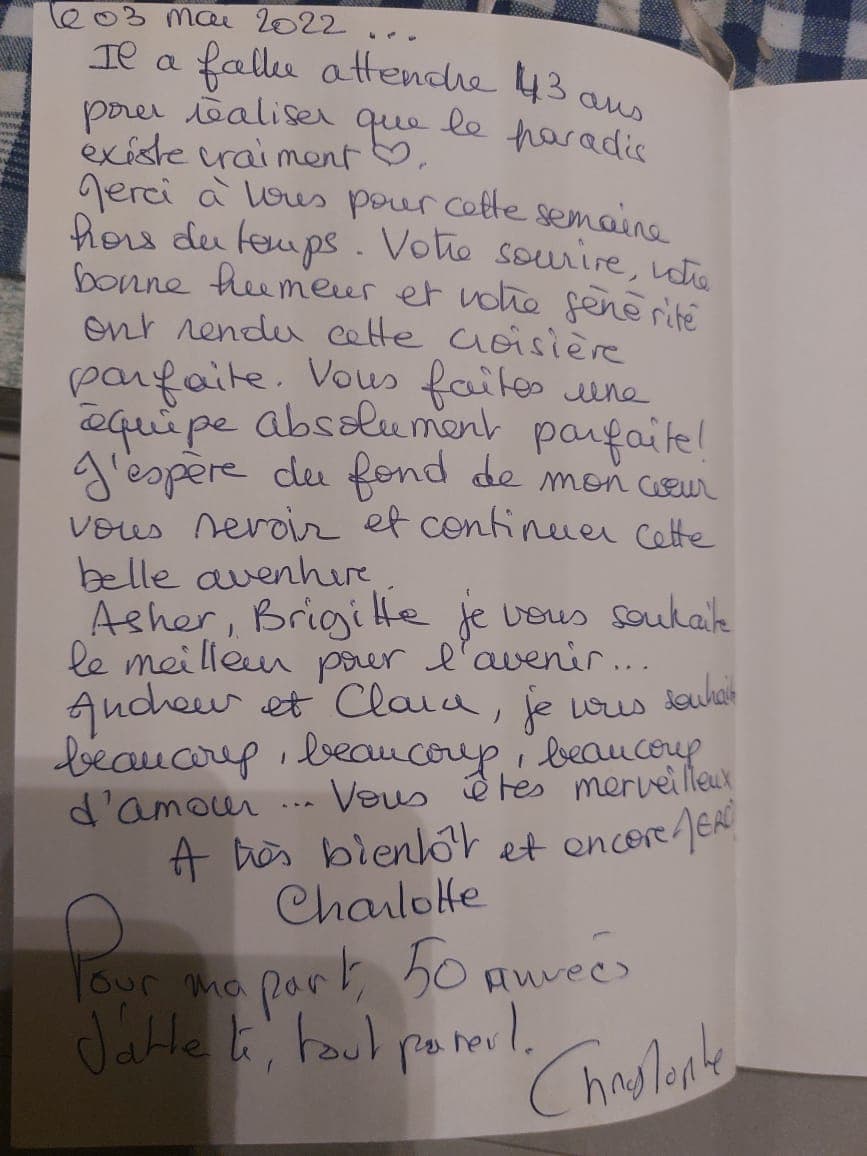 le 03 mai 2022 ...
Il a fallu attendre 43 ans
pour réaliser que le paradis
existe vraiment ♡.
Merci à vous pour cette semaine
hors du temps. Votre sourire, votre
bonne humeur et votre sénérité
ont rendu cette croisière
parfaite. Vous faites une
équipe absolument parfaite!
J'espère du fond de mon cœur
vous revoir et continuer cette
belle aventure.
Asher, Brigitte je vous souhaite
le meilleur pour l'avenir...
Andrew et Clara, je vous souhaite
beaucoup, beaucoup, beaucoup
d'amour ... Vous êtes merveilleux
A très bientôt et encore MERCI
Charlotte
Pour ma part, 50 années
d'attente, tout pareil.
Christophe